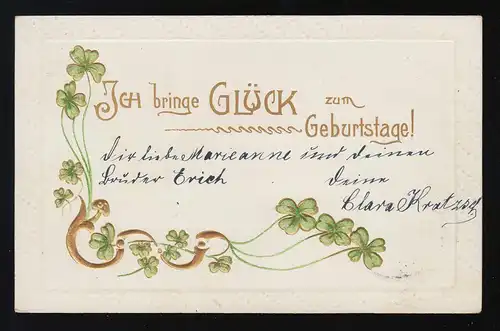 Ich bringe GLÜCK zum
Geburtstage!
Dir liebe Marieanne und deinen
Bruder Erich deine
Clara